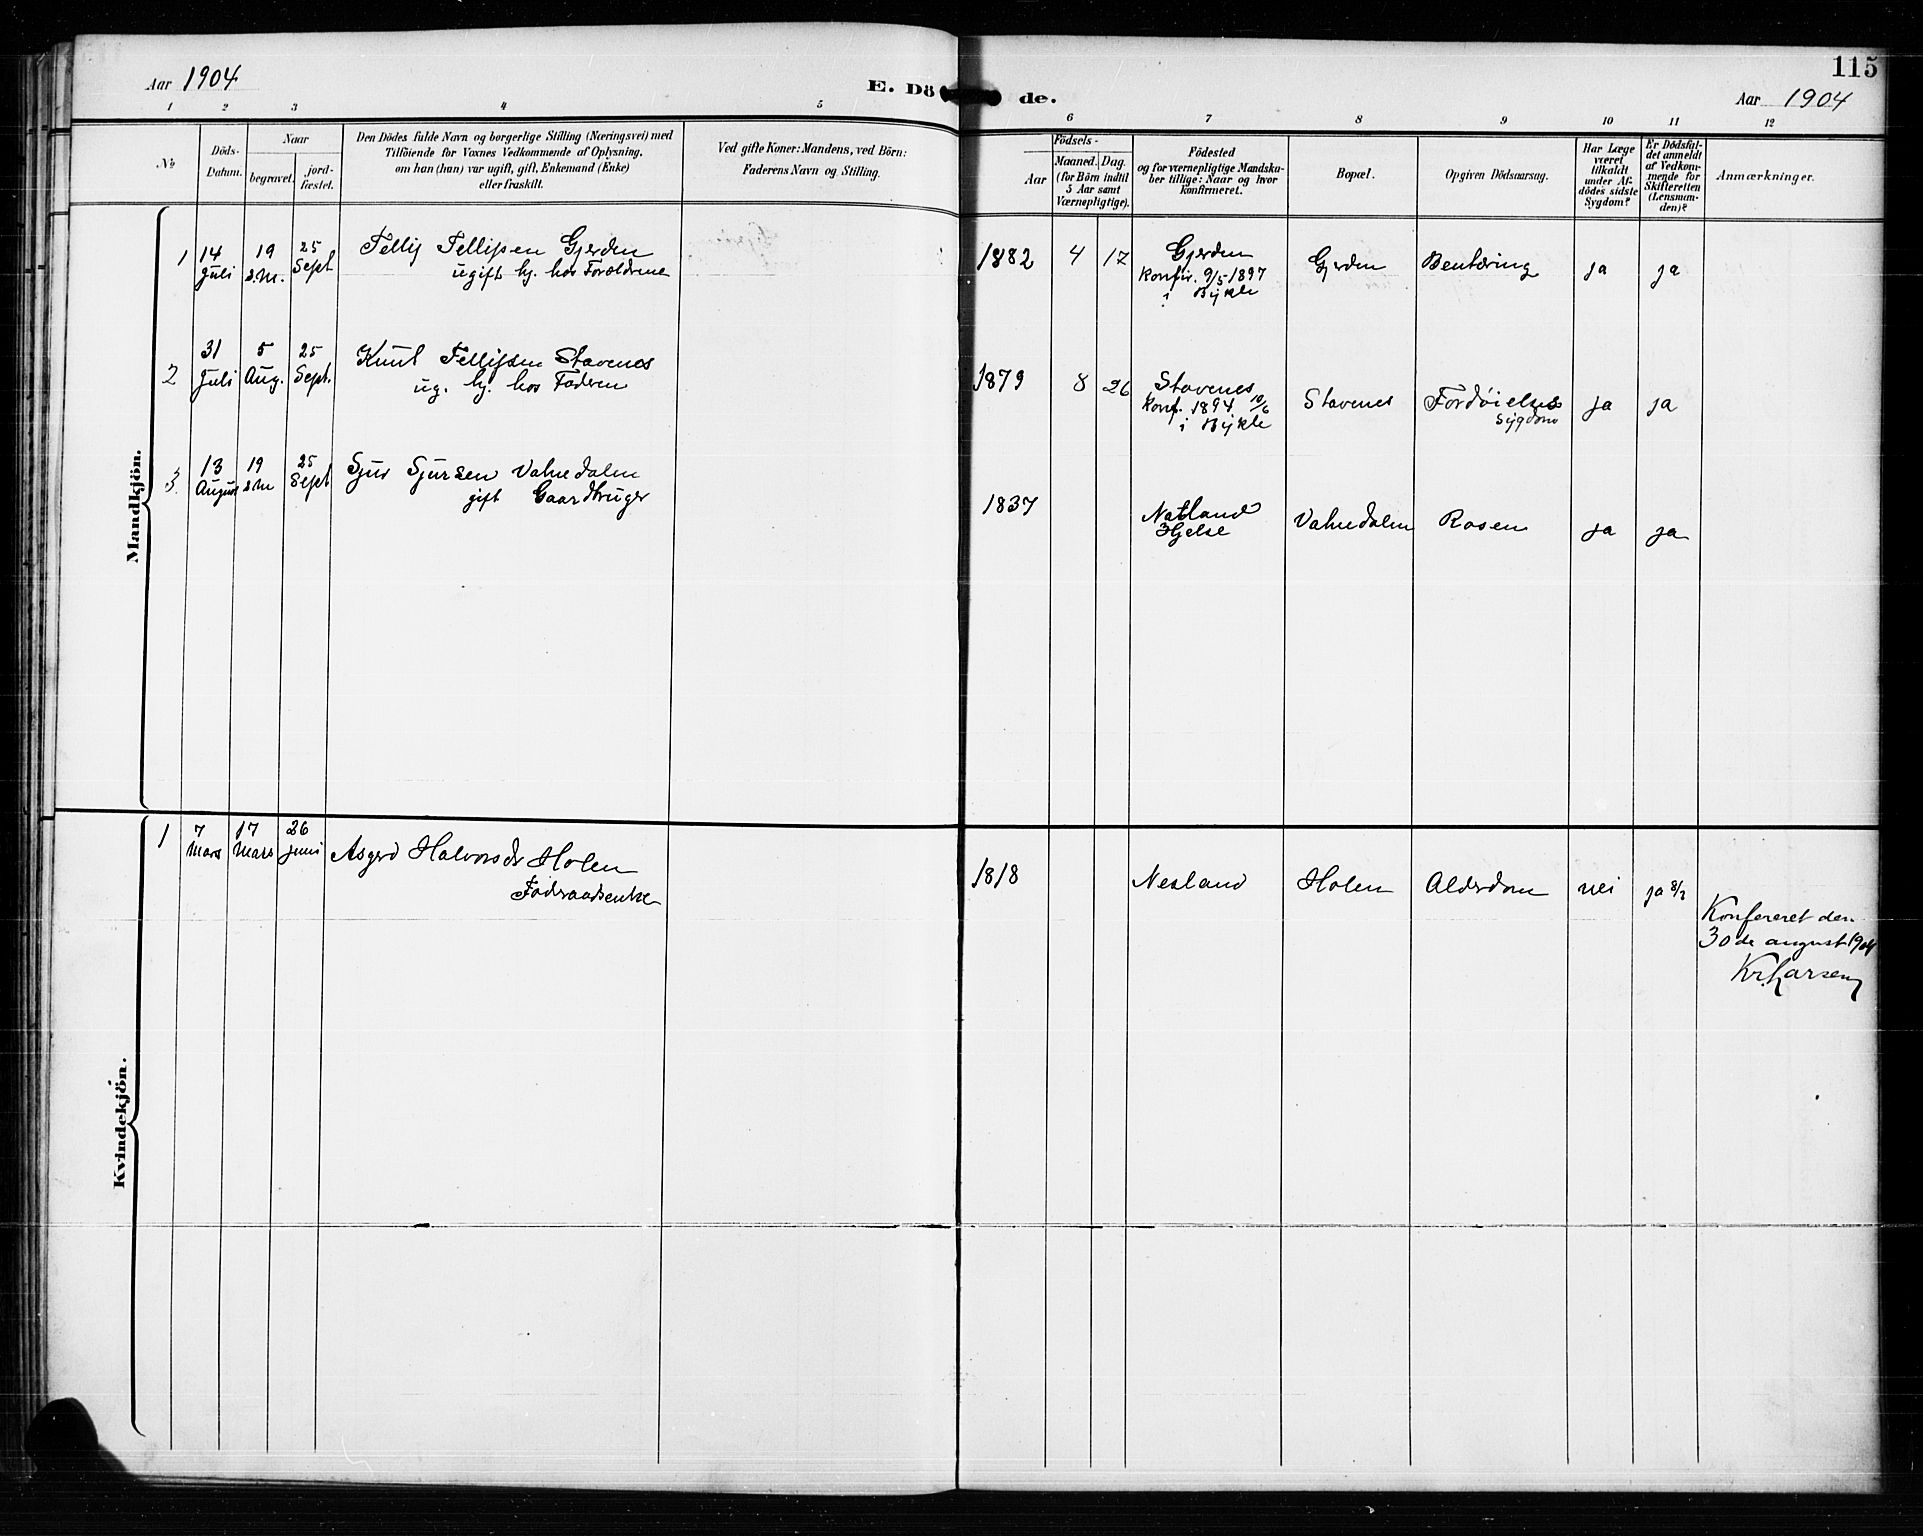 115
Aar 1904
E. Dö de.
Aar 1904
1 2 3 4 5 6 7 8 9 10 11 12
No
Döds-
Datum.
Naar
begravet.
jord-
fæstet.
Den Dödes fulde Navn og borgerlige Stilling (Næringsvei) med
Tilföiende for Voxnes Vedkommende af Oplysning,
om han (hun) var ugift, gift, Enkemand (Enke)
eller fraskilt.
Ved gifte Koner: Mandens, ved Börn:
Faderens Navn og Stilling.
Födsels-
Aar
Maaned. Dag.
(for Börn indtil
5 Aar samt
Værnepligtige).
Födested
og for værnepligtige Mandsku-
ber tillige: Naar og hvor
konfirmeret.
Bopæl.
Opgiven Dödsaarsag.
Har Læge
været
tilkaldt
under Af-
dödes sidste
Sygdom?
Er Dödsfal-
det anmeldt
af Vedkom-
mende for
Skifteretten
(Lensman-
den)?
Anmærkninger.
Mandkjön.
1 14 Juli 19 s.M. 25 Sept Tellif Tellifsen Gjerden
ugift hj. hos Forældrene
1882 4 17 Gjerden
konfir. 9/5 1897
i Bykle
Gjerden ja ja
2 31 Juli 5 Aug. 25 Sept. Knut Tellifsen Stavenes
ug. hj. hos Faderen
1879 8 26 Stavenes
konf. 1894 10/6
i Bykle
Stavenes Fordøielses
Sygdom
ja ja
3. 13 August 19 s.M 25 Sept Sjur Sjursen Vatnedalen
gift Gaardbruger
1837 Natland
Hjelse
Vatnedalen Rosen ja ja
Kvindekjön.
1 7 Mars 17 Mars 26 Juni Asgerd Halvorsdr Holen
Føderaadsenke
1818 Nesland Holen Alderdom nei ja 8/3
Konfereret den
30de august 1904
Kr. Larsen